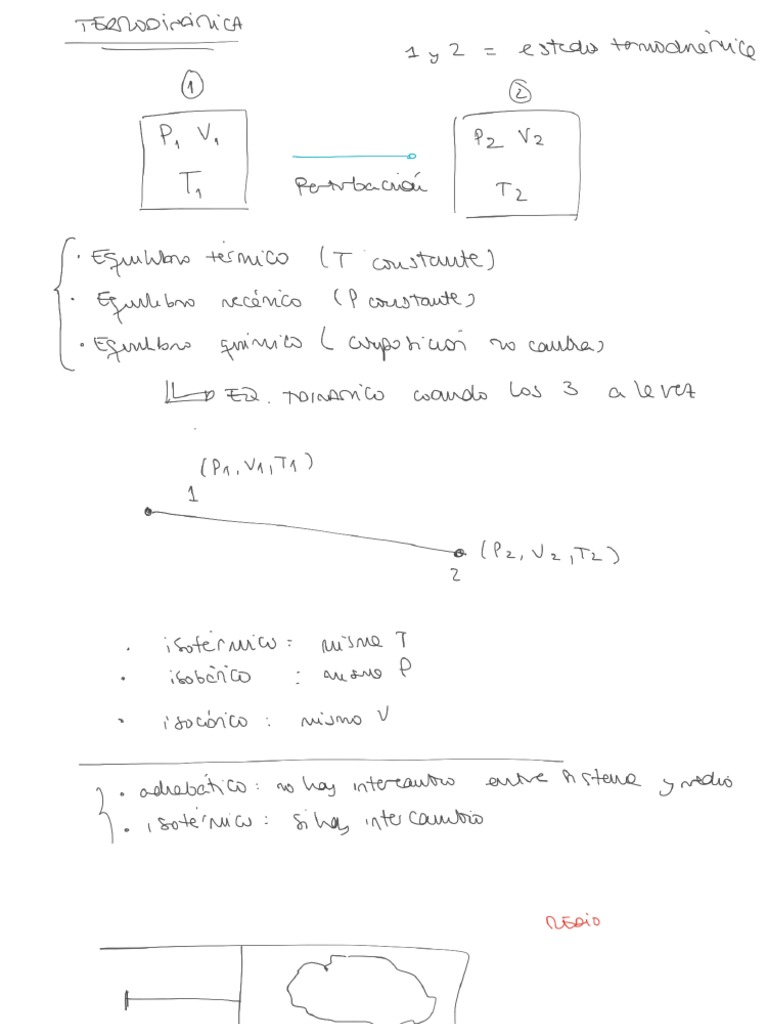 TERMODINÁMICA
1 y 2 = estado termodinámico
① ②
P₁ V₁ P₂ V₂
T₁ Perturbación T₂
· Equilibrio térmico (T constante)
· Equilibrio mecánico (P constante)
· Equilibrio químico (composición no cambia)
EQ. TDINÁMICO cuando los 3 a la vez
(P₁, V₁, T₁)
1
(P₂, V₂, T₂)
2
· isotérmico: misma T
· isobárico : misma P
· isocórico : mismo V
· adiabático: no hay intercambio entre sistema y medio
· isotérmico: si hay intercambio
MEDIO